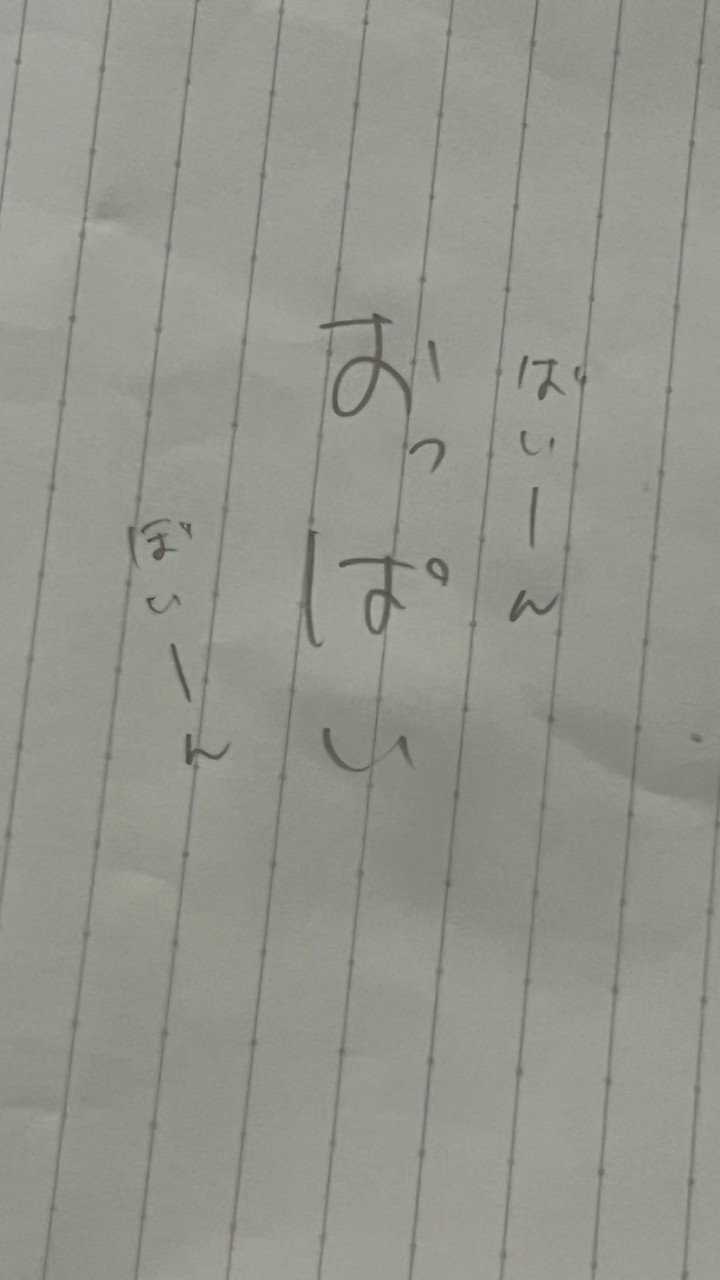 ばいーん
おっぱい
ぼいーん